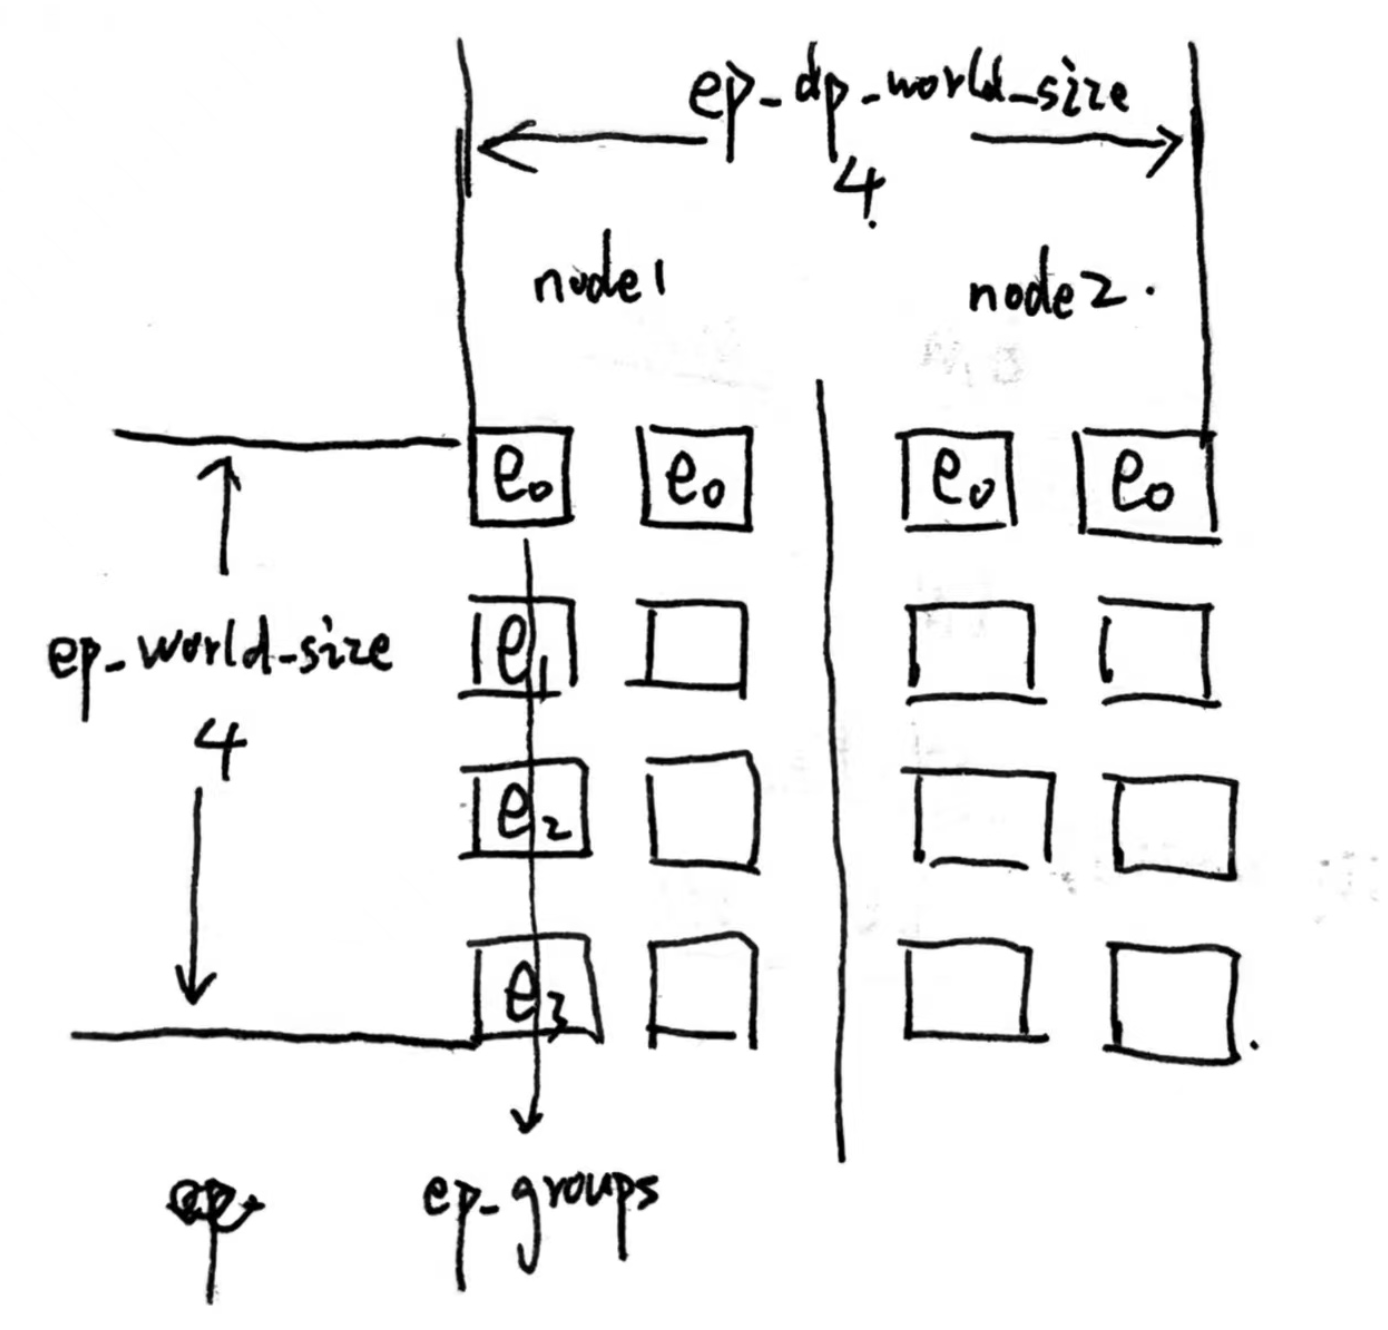 ep_dp_world_size
4
node1 node2
e0 e0 e0 e0
ep_world_size
e1
4
e2
e3
ep_groups